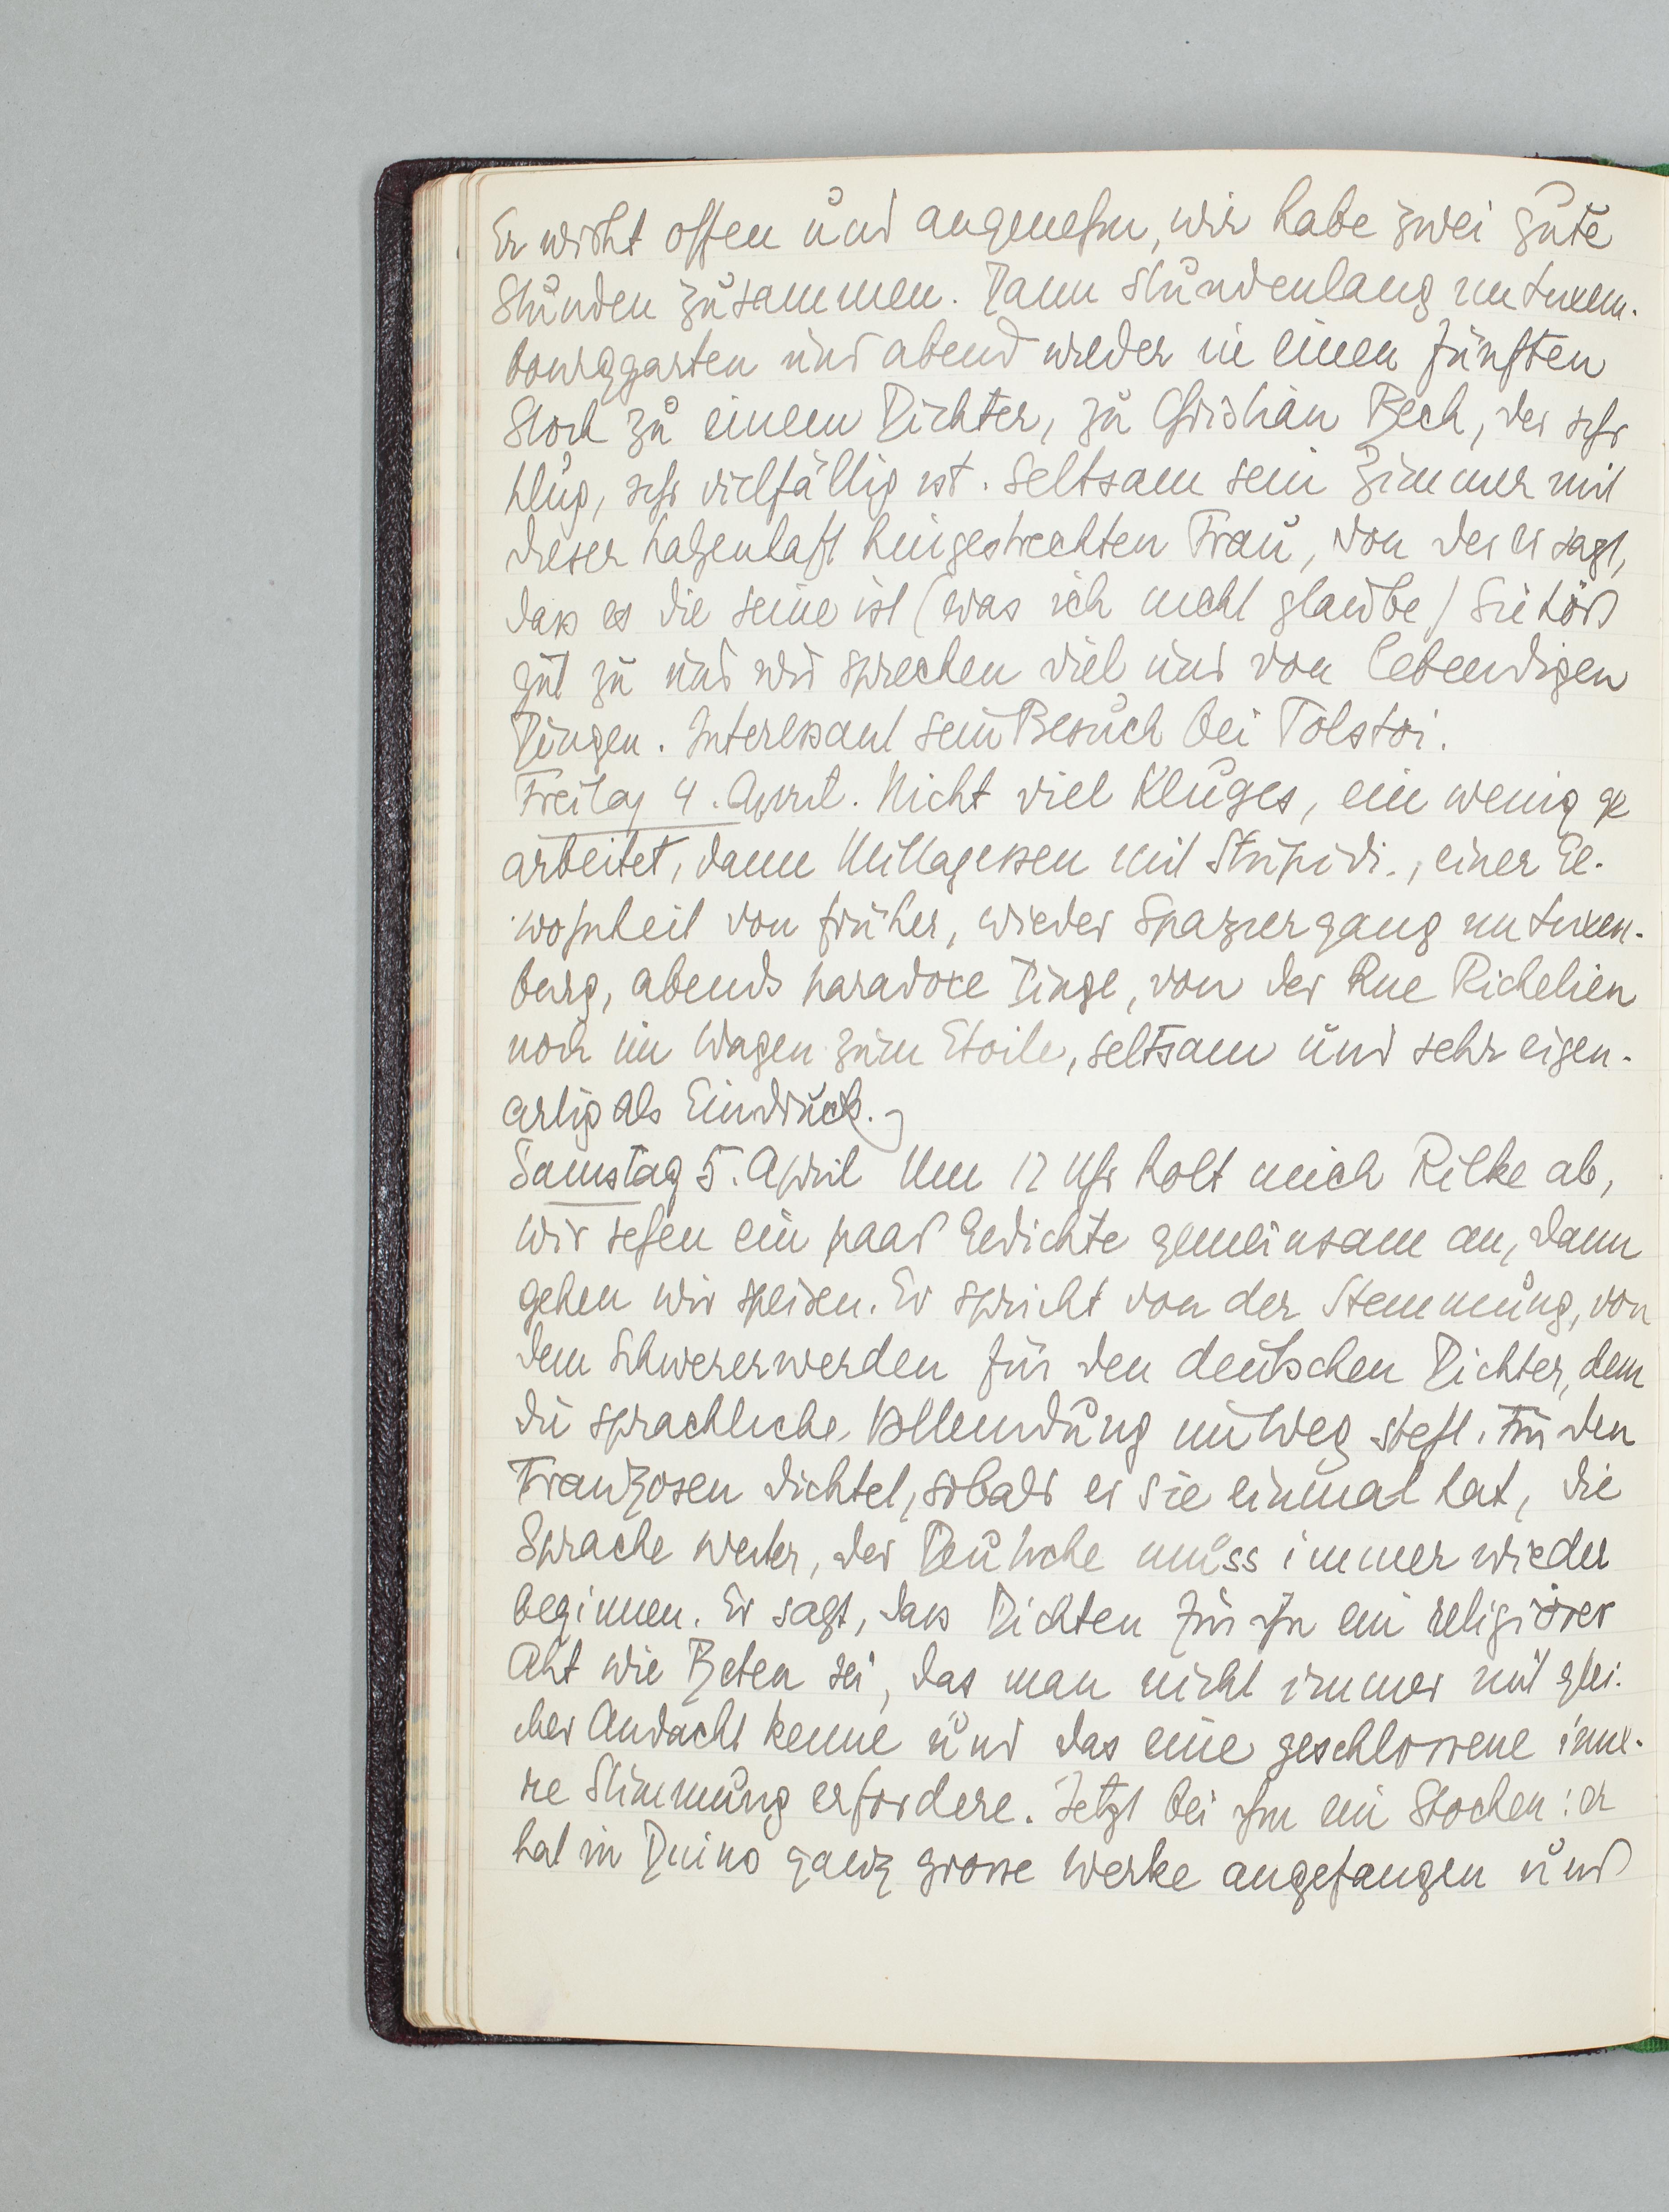 Er wirkt offen und angenehm, wir habe zwei gute
Stunden zusammen. Dann stundenlang im Luxem-
bourggarten und abend wieder in einen fünften
Stock zu einem Dichter, zu Christian Beck, der sehr
klug, sehr vielfällig ist. Seltsam sein Zimmer mit
dieser katzenhaft hingestreckten Frau, von der er sagt,
dass es die seine ist (was ich nicht glaube) Sie hört
gut zu und wir sprechen viel und von lebendigen
Dingen. Interessant sein Besuch bei Tolstoi.
Freitag 4. April. Nicht viel Kluges, ein wenig ge
arbeitet, dann Mittagessen mit, einer Ge-
wohnheit von früher, wieder Spaziergang im Luxem-
burg, abends paradoxe Dinge, von der Rue Richelieu
noch im Wagen zum Etoile, seltsam und sehr eigen-
artig als Eindruck.
Samstag 5. April Um 12 Uhr holt mich Rilke ab,
wir sehen ein paar Gedichte gemeinsam an, dann
gehen wir speisen. Er spricht von der Stemmung, von
dem Schwererwerden für den deutschen Dichter, dem
die sprachliche Vollendung im Weg steht. Für den
Franzosen dichtet, sobald er sie einmal hat, die
Sprache weiter, der Deutsche muss immer wieder
beginnen. Er sagt, dass Dichten für ihn ein religiöser
Akt wie Beten sei, das man nicht immer mit glei-
cher Andacht kenne und das eine geschlossene inne-
re Stimmung erfordere. Jetzt bei ihm ein Stocken: er
hat in Duino ganz grosse Werke angefangen und